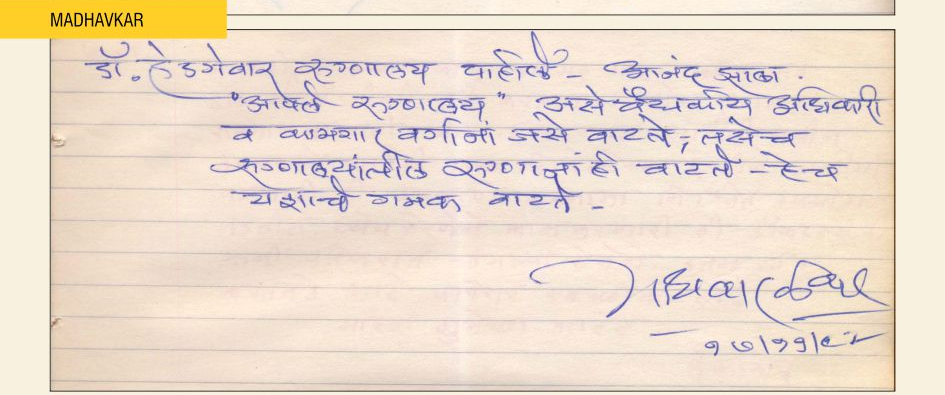 MADHAVKAR
डॉ. हेडगेवार रुग्णालय पाहीले - आनंद झाला.
"आपलं रुग्णालय" असे वैद्यकीय अधिकारी
व कामगार वर्गाना जसे वाटते, तसेच
रुग्णालयांतील रुग्णांनाही वाटते - हेच
यशाचे गमक वाटते -
१७/११/९२